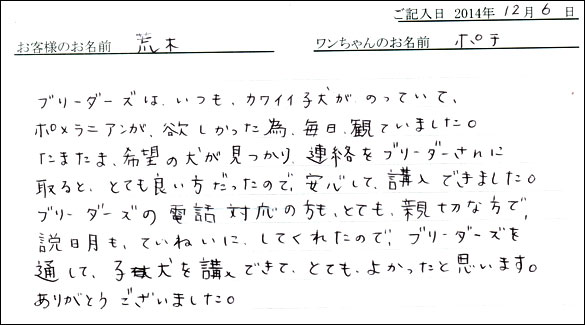 ご記入日 2014年 12月 6 日
お客様のお名前 荒木 ワンちゃんのお名前 ポテ
ブリーダーズは、いつも、カワイイ子犬が、のっていて、
ポメラニアンが、欲しかった為、毎日、観ていました。
たまたま、希望の犬が見つかり、連絡をブリーダーさんに
取ると、とても良い方だったので、安心して、講入できました。
ブリーダーズの電話対応の方も、とても、親切な方で、
説明も、ていねいに、してくれたので、ブリーダーズを
通して、子犬を講入できて、とても、よかったと思います。
ありがとうございました。